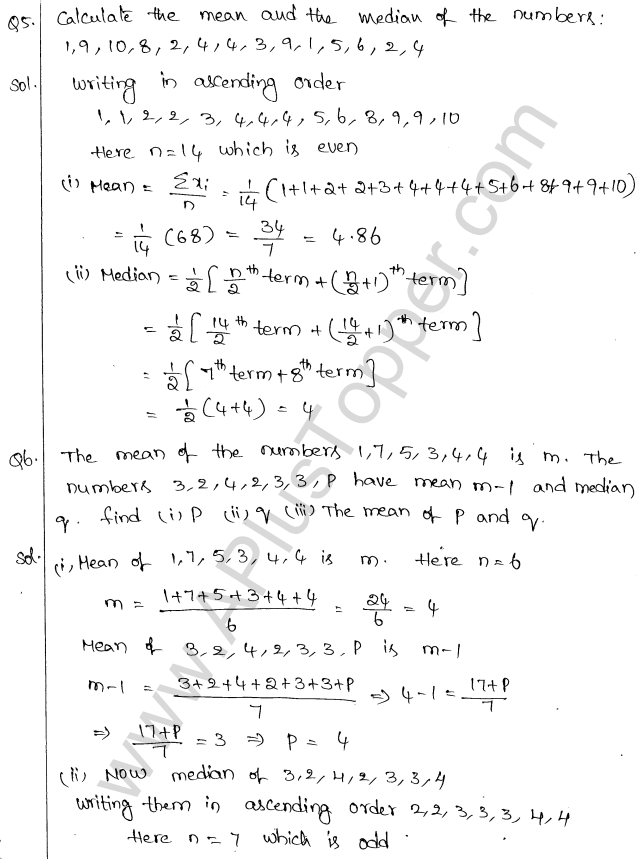 Q5. Calculate the mean and the median of the numbers:
1,9,10,8,2,4,4,3,9,1,5,6,2,4
Sol. Writing in ascending order
1,1,2,2,3,4,4,4,5,6,8,9,9,10
Here n=14 which is even
(i) Mean = Σxi/n = 1/14 (1+1+2+2+3+4+4+4+5+6+8+9+9+10)
= 1/14 (68) = 34/7 = 4.86
(ii) Median = 1/2 [n/2 th term + (n/2+1)th term]
= 1/2 [14/2 th term + (14/2+1)th term]
= 1/2 [7th term + 8th term]
= 1/2 (4+4) = 4
Q6. The mean of the numbers 1,7,5,3,4,4 is m. The
numbers 3,2,4,2,3,3,P have mean m-1 and median
q. find (i) P (ii) q (iii) The mean of P and q.
Sol. (i) Mean of 1,7,5,3,4,4 is m. Here n=6
m = 1+7+5+3+4+4/6 = 24/6 = 4
Mean of 3,2,4,2,3,3,P is m-1
m-1 = 3+2+4+2+3+3+P/7 ⇒ 4-1 = 17+P/7
⇒ 17+P/7 = 3 ⇒ P = 4
(ii) Now median of 3,2,4,2,3,3,4
writing them in ascending order 2,2,3,3,3,4,4
Here n=7 which is odd
www.APlusTopper.com